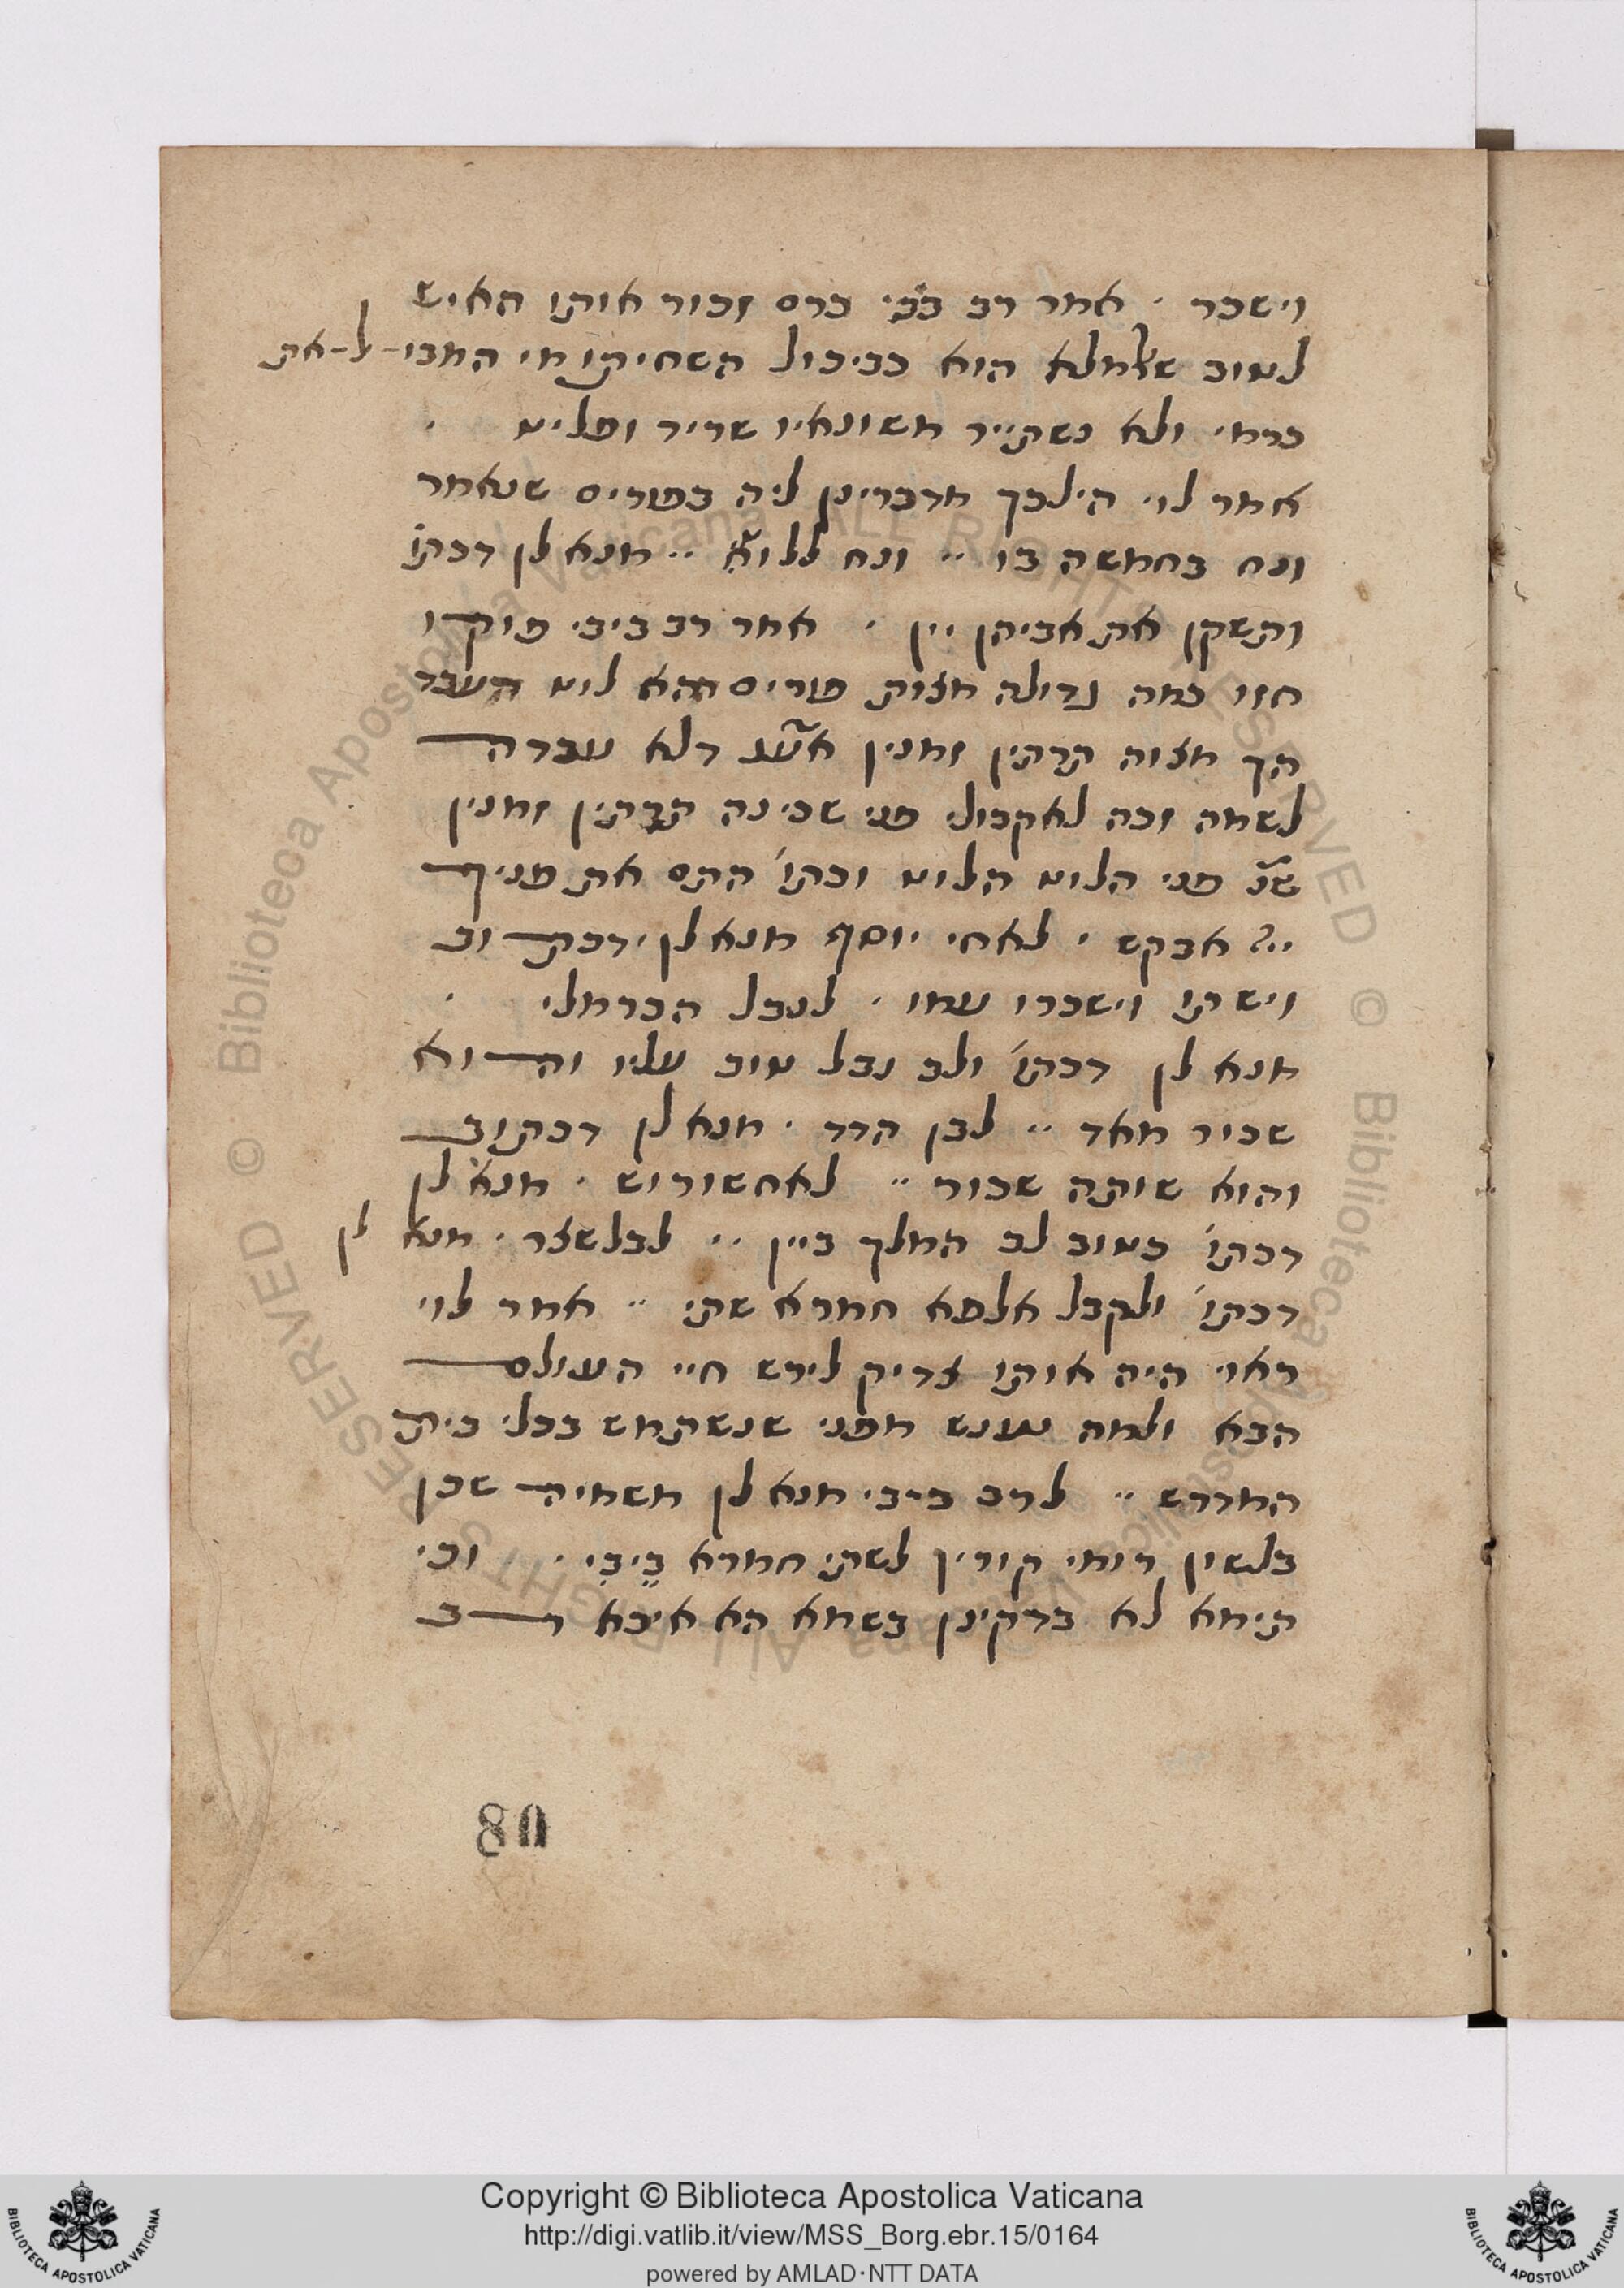 וישכר · אמר רב ביבי ברם זכור אותו האיש
לטוב שאלמלא הוא כביכול השחיתו מי המבול את
כרמי ולא נשתייר משונאיו שריד ופליט ·
אמר לוי הילכך מדכרינן ליה בפורים שנאמר
ונח בחמשה בו ·· ונח ללוט ·· מנא לן דכתו׳
ותשקן את אביהן יין · אמר רב ביבי פוקו
חזו כמה גדולה מצות פורים דהא לוט דעבד
הך מצוה תרתין זמנין אע״ג דלא עבדה
לשמה זכה לאקבולי פני שכינה תרתין זמנין
שנ׳ פני הלוט הלוט וכתו׳ התם את פניך
ייי אבקש · לאחי יוסף מנא לן דכתוב
וישתו וישכרו עמו · לנבל הכרמלי ·
מנא לן דכתו׳ ולב נבל טוב עליו והוא
שכור מאד ·· לבן הדד · מנא לן דכתוב
והוא שותה שכור ·· לאחשורוש · מנא לן
דכתו׳ כטוב לב המלך ביין ·· לבלשצר · מנא לן
דכתו׳ ולקבל אלפא חמרא שתי ·· אמר לוי
ראוי היה אותו צדיק לירש חיי העולם
הבא ולמה נענש מפני שנשתמש בכלי בית
המקדש ·· לרב ביבי מנא לן משמיה שכן
בלשון רומי קורין לשתי חמרא ביבי · וכי
תימא לא בדקינן בשמא הא איכא רב
80
Copyright © Biblioteca Apostolica Vaticana
http://digi.vatlib.it/view/MSS_Borg.ebr.15/0164
powered by AMLAD·NTT DATA